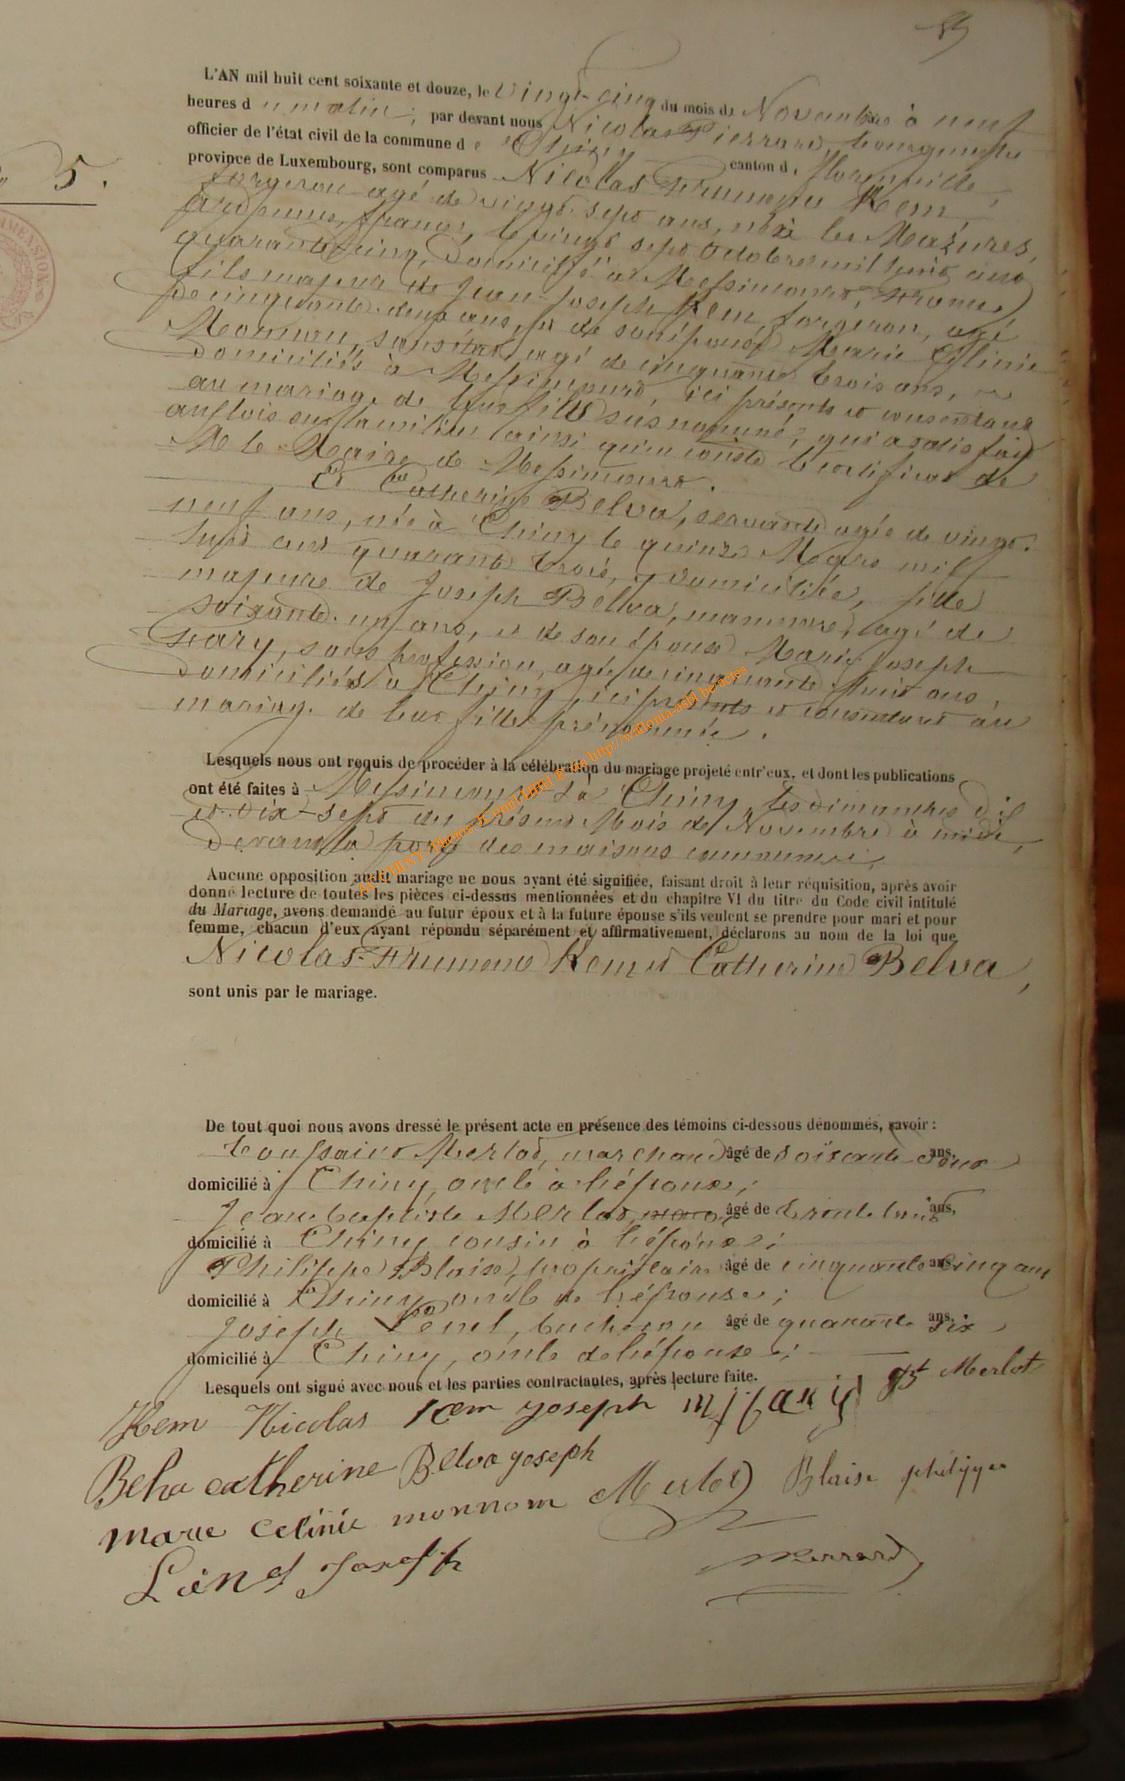 5.
L'AN mil huit cent soixante et douze, le Vingt-cinq du mois de Novembre à neuf
heures du matin; par devant nous Nicolas Pierrard, bourgmestre
officier de l'état civil de la commune de Chiny canton de Florenville,
province de Luxembourg, sont comparus Nicolas Frumence Kem,
forgeron agé de vingt-sept ans, né à les Mazures,
ardennes, france, le vingt sept Octobre mil huit cent
quarante cinq, domicilié à Messincourt, France,
fils majeur de Jean-Joseph Kem, forgeron, agé
de cinquante-deux ans, et de son épouse Marie Célinie
Monnon, sans état, agé de cinquante trois ans,
domiciliés à Messincourt, ici présents et consentant
au mariage de leur fils susnommé, qui a satisfait
aux lois sur la milice ainsi qu'en conste certificat de
M le Maire de Messincourt.
Et Catherine Belva, servante agée de vingt-
neuf ans, née à Chiny le quinze Mars mil
huit cent quarante trois, y domiciliée, fille
majeure de Joseph Belva, manœuvre, agé de
soixante-un ans, et de son épouse Marie Joseph
, sans profession, agée de cinquante-huit ans
domiciliés à Chiny, ici présents et consentant au
mariage de leur fille prénommée.
Lesquels nous ont requis de procéder à la célébration du mariage projeté entr'eux, et dont les publications
ont été faites à Messincourt et à Chiny les dimanches dix
et dix-sept du présent Mois de Novembre à midi,
devant la porte des maisons communes,
Aucune opposition audit mariage ne nous ayant été signifiée, faisant droit à leur réquisition, après avoir
donné lecture de toutes les pièces ci-dessus mentionnées et du chapitre VI du titre du Code civil intitulé
du Mariage, avons demandé au futur époux et à la future épouse s'ils veulent se prendre pour mari et pour
femme, chacun d'eux ayant répondu séparément et affirmativement, déclarons au nom de la loi que
Nicolas-Frumence Kem et Catherine Belva,
sont unis par le mariage.
De tout quoi nous avons dressé le présent acte en présence des témoins ci-dessous dénommés, savoir :
Toussaint Merlot, marchand âgé de soixante deux ans,
domicilié à Chiny, oncle à l'épouse;
Jean-baptiste Merlot, âgé de trente trois ans,
domicilié à Chiny cousin à l'épouse;
Philippe Blaise, propriétaire âgé de cinquante cinq ans
domicilié à Chiny, oncle de l'épouse;
Joseph Lénel, bucheron âgé de quarante six ans,
domicilié à Chiny, oncle de l'épouse;
Lesquels ont signé avec nous et les parties contractantes, après lecture faite.
Kem Nicolas Kem joseph Merlot
Belva catherine Belva joseph
marie celinie monnom Merlot Blaise philippe
Joseph Pierrard